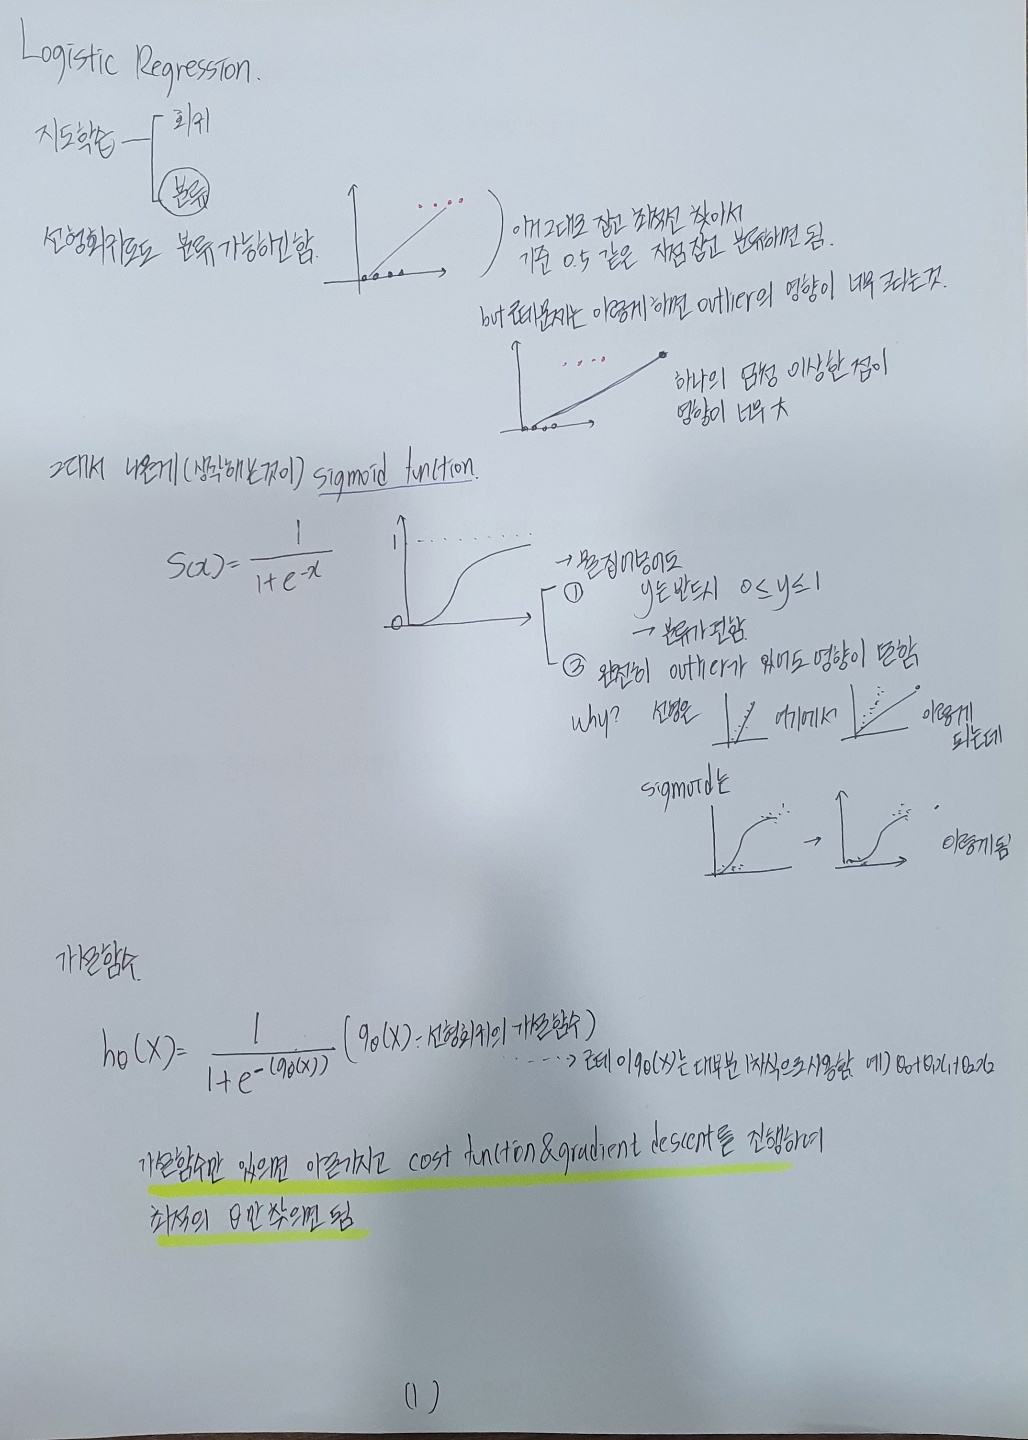 Logistic Regression.
지도학습
회귀
분류
선형회귀로도 분류 가능하긴함.
이거 그대로 잡고 최적선 찾아서
기준 0.5 같은 지점잡고 분류하면 됨.
but 근데 문제는 이렇게 하면 outlier의 영향이 너무 크다는것.
하나의 이상한 점이
영향이 너무 大
그래서 나온게(생각해낸것이) sigmoid function.
S(x)= 1 / 1+e^-x
1
0
① y는 반드시 0≤y≤1
→ 분류가 편함
② 완전히 outlier가 있어도 영향이 덜함
why? 선형은 여기에서 이렇게
되는데
sigmoid는
→ 이렇게 됨
가설함수.
hθ(X)= 1 / 1+e^-(gθ(X)) (gθ(X): 선형회귀의 가설함수)
----> 근데 이 gθ(X)는 대부분 1차식으로 사용함 예) θ0+θ1x1+θ2x2
가설함수만 있으면 이걸가지고 cost function&gradient descent를 진행하여
최적의 θ만 찾으면 됨
(1)